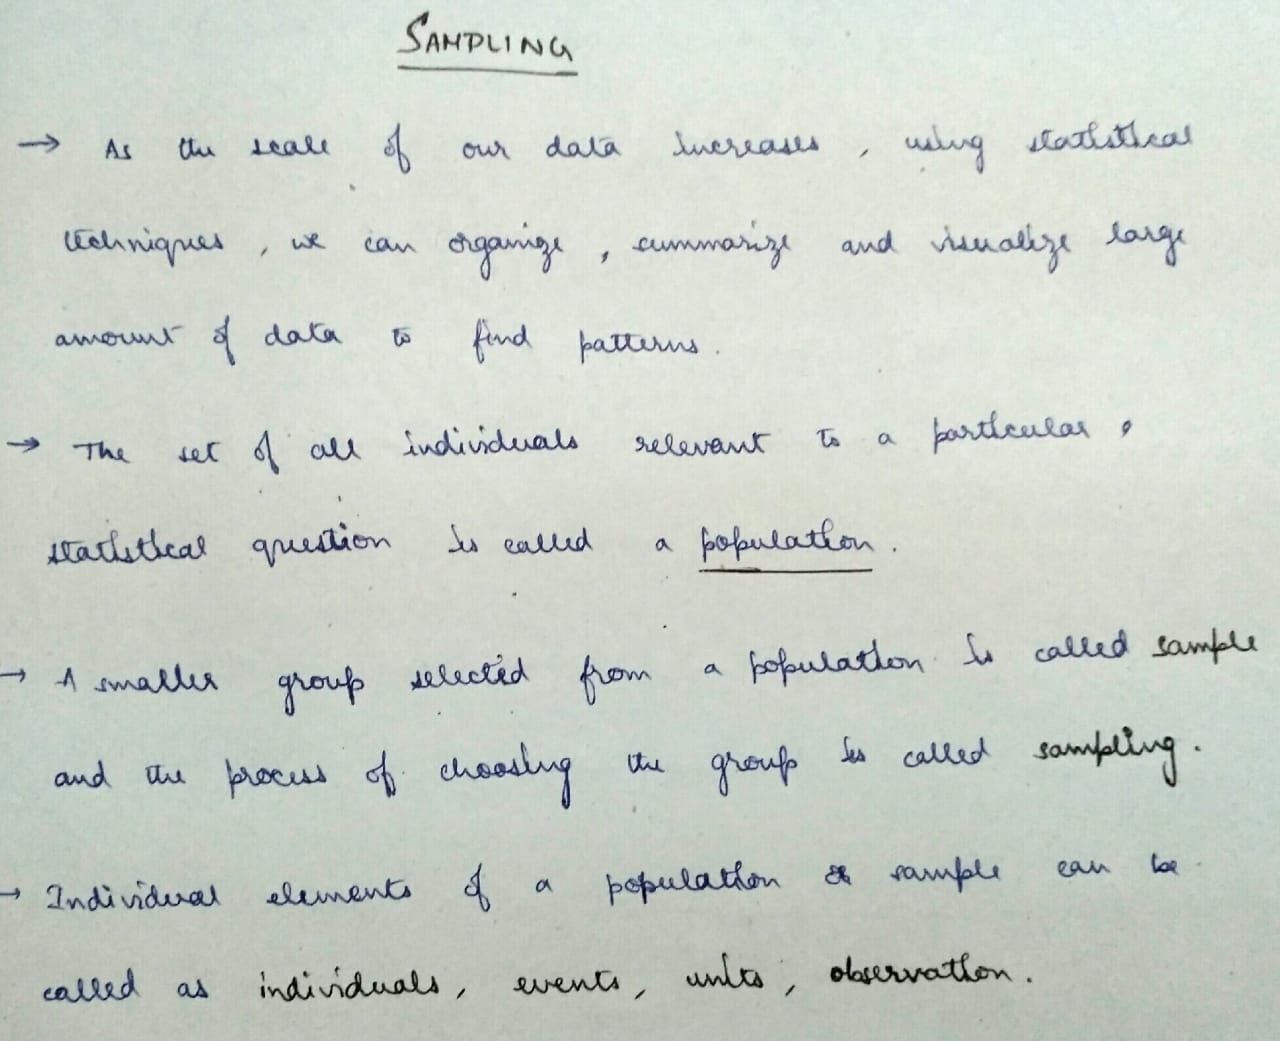 SAMPLING
→ As the scale of our data increases, using statistical
techniques, we can organize, summarize and visualize large
amount of data to find patterns.
→ The set of all individuals relevant to a particular,
statistical question is called a population.
→ A smaller group selected from a population is called sample
and the process of choosing the group is called sampling.
→ Individual elements of a population or sample can be
called as individuals, events, units, observation.